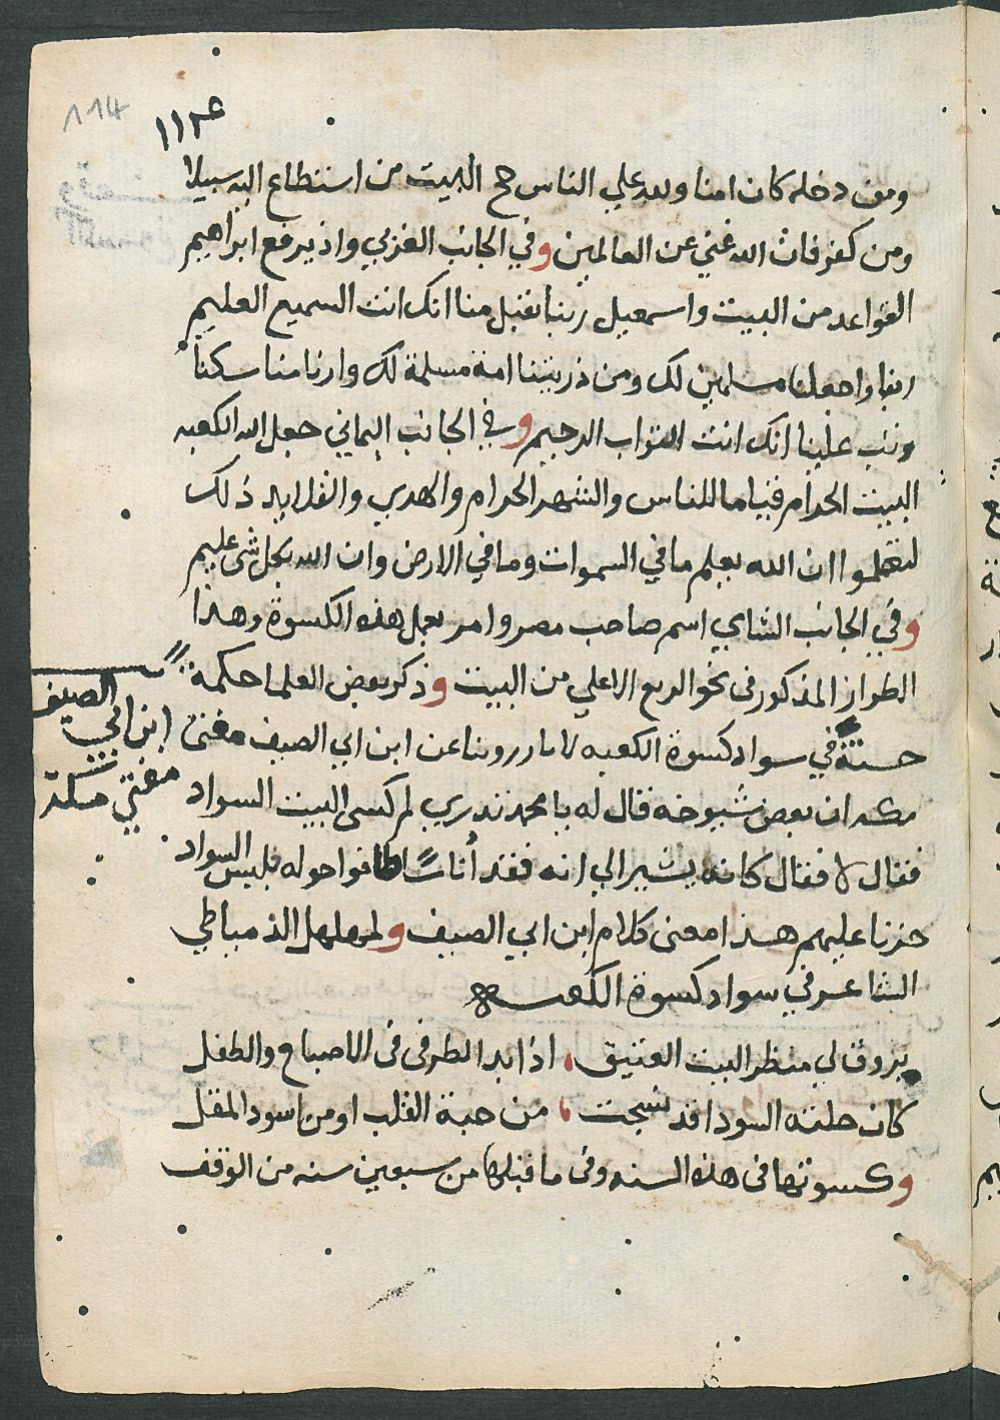 ١١٣٤
114
ومن دخله كان امنا ولله علي الناس حج البيت من استطاع اليه سبيلا
ومن كفر فان الله غني عن العالمين وفي الجانب الغربي واذ يرفع ابراهيم
القواعد من البيت واسمعيل ربنا تقبل منا انك انت السميع العليم
ربنا واجعلنا مسلمين لك ومن ذريتنا امة مسلمة لك وارنا مناسكنا
وتب علينا انك انت التواب الرحيم وفي الجانب اليماني جعل الله الكعبه
البيت الحرام قياما للناس والشهر الحرام والهدي والقلايد ذلك
لتعلموا ان الله يعلم ما في السموات وما في الارض وان الله بكل شى عليم
وفي الجانب الشامي اسم صاحب مصر وامر بعمل هذه الكسوة وهذا
الطراز المذكور فى نحو الربع الاعلي من البيت وذكر بعض العلما حكمة
حسنة في سواد كسوة الكعبه لانا روينا عن ابن ابي الصيف مفتى
مكه ان بعض شيوخه قال له يا محمد تدري لم كسى البيت السواد
فقال لا فقال كانه يشير الي انه فقد أناسًا كانوا حوله فلبس السواد
حزنا عليهم هذا معنى كلام ابن ابي الصيف ولمهلهل الدمياطي
الشاعر في سواد كسوة الكعبه
يروق لي منظر البيت العتيق اذا بدا لطرفى فى الاصباح والطفل
كان حلته السودا قد نسجت من حبة القلب او من اسود المقل
وكسوتها فى هذه السنه وفى ما قبلها من سبعين سنه من الوقف
الصيف
ابن ابي
مفتي مكة